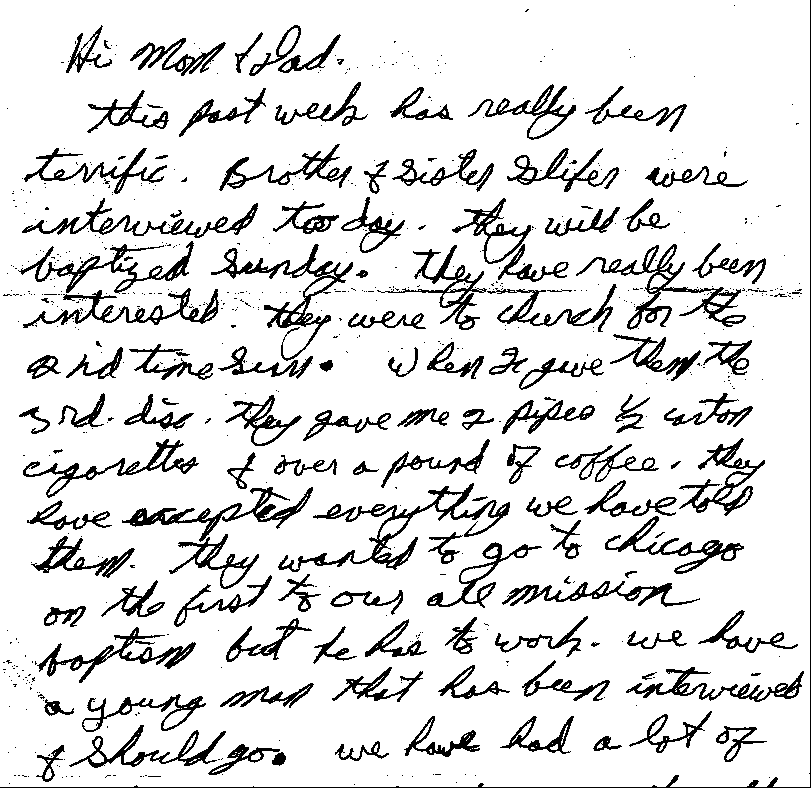 Hi Mom & Dad.
This past week has really been
terrific. Brother & Sister Slifer were
interviewed today. they will be
baptized Sunday. They have really been
interested. they were to church for the
2nd time Sun. When I gave them the
3rd. disc. they gave me 2 pipes ½ carton
cigarettes & over a pound of coffee. they
have accepted everything we have told
them. they wanted to go to chicago
on the first to our all mission
baptism but he has to work. we have
a young man that has been interviewed
& should go. we have had a lot of